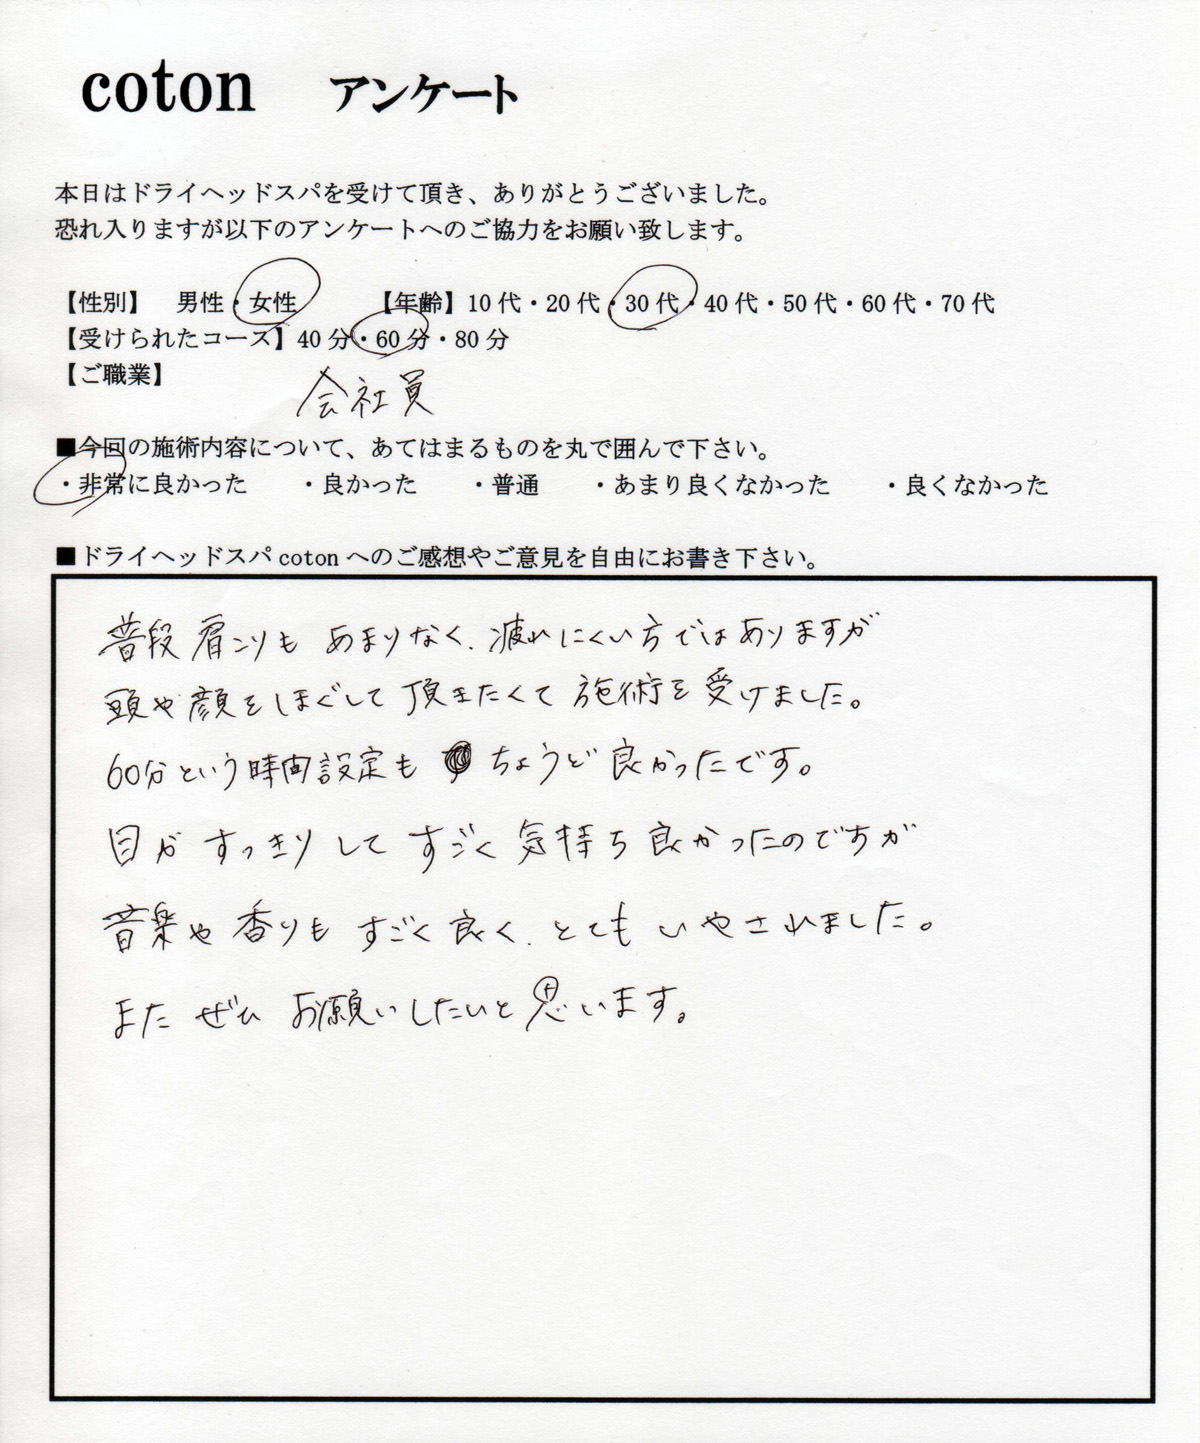 coton アンケート
本日はドライヘッドスパを受けて頂き、ありがとうございました。
恐れ入りますが以下のアンケートへのご協力をお願い致します。
【性別】 男性・女性 【年齢】10代・20代・30代・40代・50代・60代・70代
【受けられたコース】40分・60分・80分
【ご職業】
会社員
■今回の施術内容について、あてはまるものを丸で囲んで下さい。
・非常に良かった ・良かった ・普通 ・あまり良くなかった ・良くなかった
■ドライヘッドスパcotonへのご感想やご意見を自由にお書き下さい。
普段肩こりも あまりなく、疲れにくい方ではありますが
頭や顔をほぐして頂きたくて施術を受けました。
60分という時間設定も ちょうど良かったです。
目が すっきりして すごく気持ち良かったのですが
音楽や香りも すごく良く、とても いやされました。
また ぜひ お願いしたいと思います。